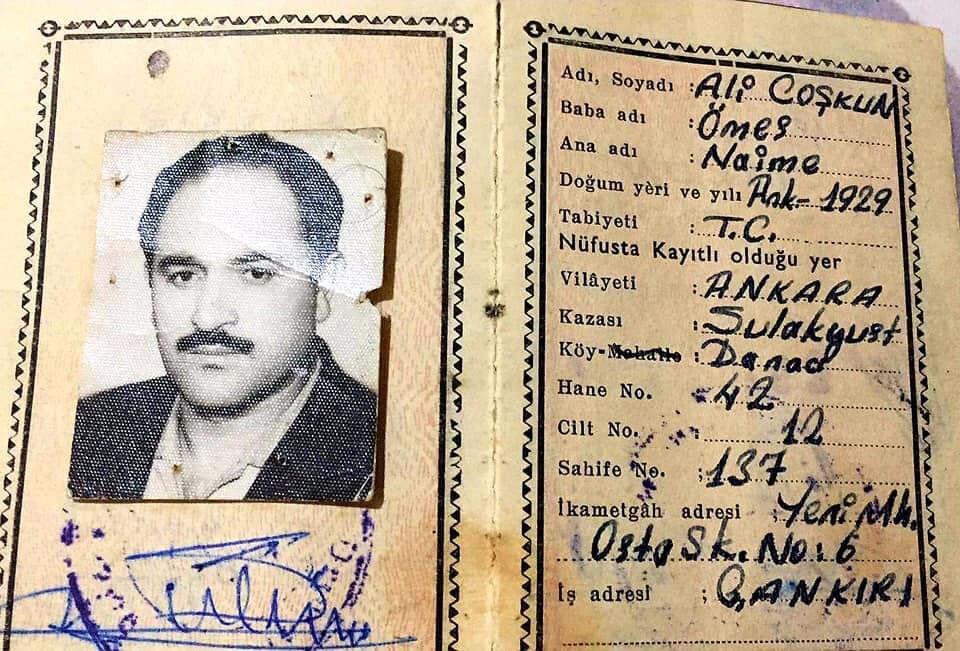 Adı, Soyadı : Ali COŞKUN
Baba adı : Ömeş
Ana adı : Naime
Doğum yèri ve yılı Ank- 1929
Tabiyeti : T.C.
Nüfusta Kayıtlı olduğu yer
Vilâyeti : ANKARA
Kazası : Sulakyust
Köy-Mahalle : Danacı
Hane No. 42
Cilt No. : 12
Sahife No. ; 137
İkametgâh adresi ; Yeni Mh.
Osta Sk. No: 6
İş adresi ; ÇANKIRI